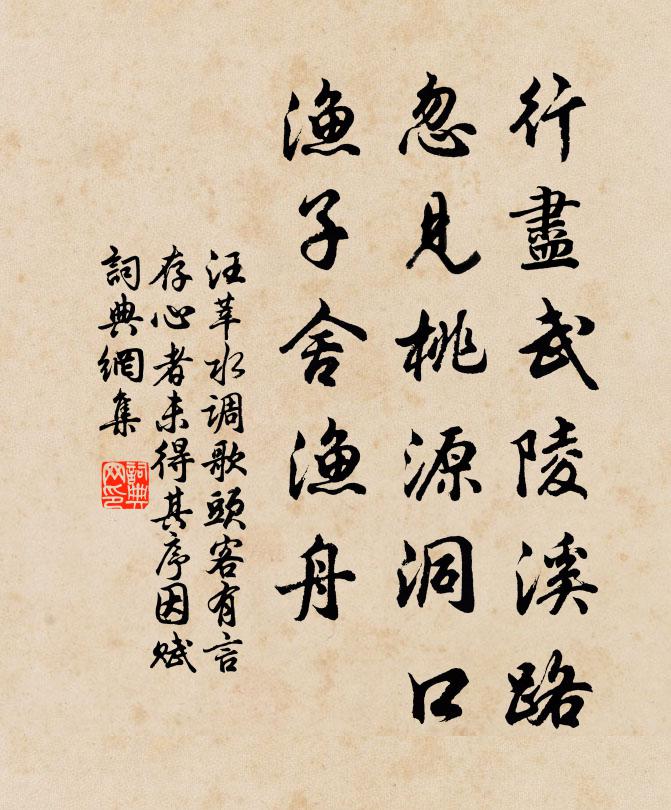 行盡武陵溪路
忽見桃源洞口
漁子舍漁舟
汪莘水调歌頭客有言
存心者未得其序因賦
詞典網集
詞典網印